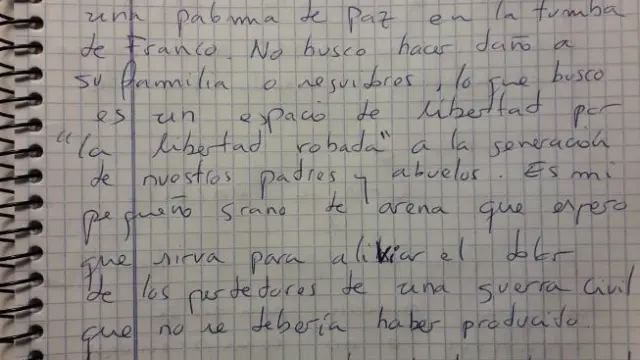 una paloma de paz en la tumba
de Franco. No busco hacer daño a
su familia o resuidores, lo que busco
es un espacio de libertad por
"la libertad robada" a la generación
de nuestros padres y abuelos. Es mi
pequeño grano de arena que espero
que sirva para aliviar el dolor
de los perdedores de una guerra civil
que no se debería haber producido.